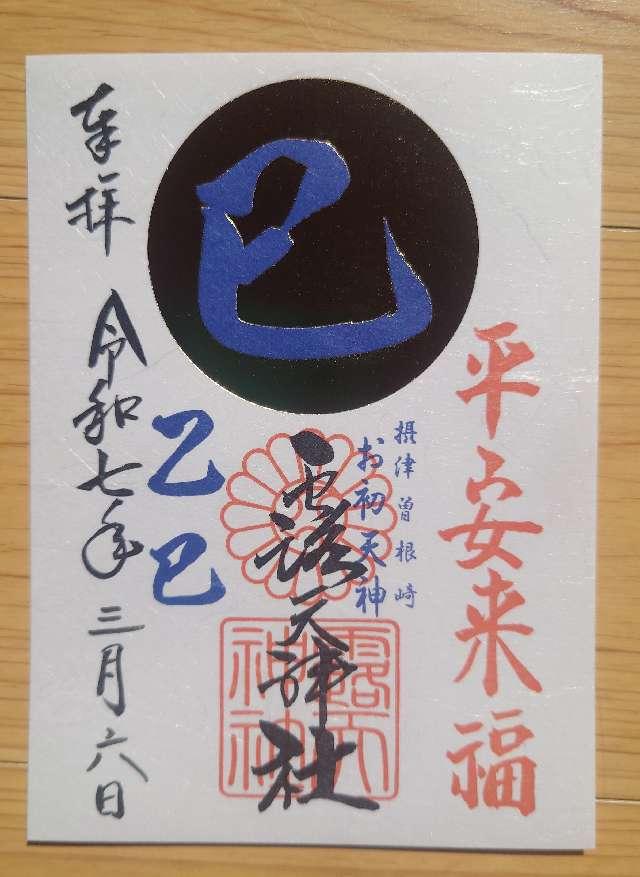 巳
平安来福
摂津曽根崎
お初天神
露天神社
乙巳
奉拝
令和七年三月六日